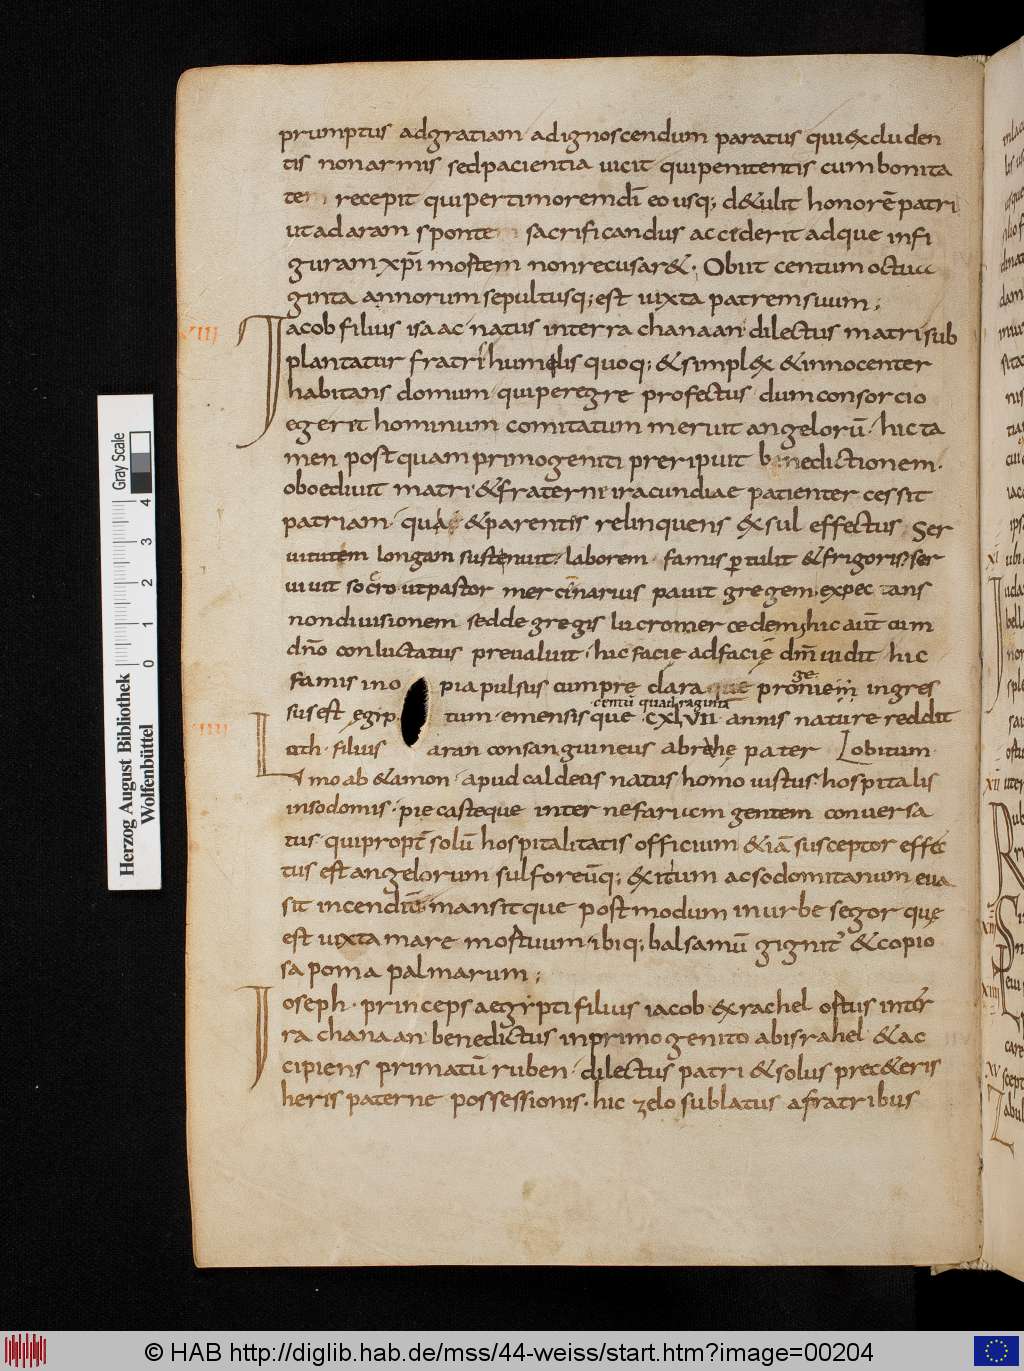 prumptus adgratiam adignoscendum paratus quiexcluden
tis nonarmis sedpacientia uicit quipenitentis cumbonita
tem recepit quipertimoremdī eousq; d&ulit honorē patri
utadaram sponte sacrificandus accederit adque infi
guramxpī mostem nonrecusar&· Obiit centum octua
ginta annorum sepultusq; est iuxta patremsuum;
VIII
Iacob filius isaac natus interra chanaan dilectus matri sub
plantatur fratri humilis quoq; & simplex & innocenter
habitans domum quiperegre profectus dumconsorcio
egerit hominum comitatum meruit angelorū· hic ta
men postquam primogeniti preripuit benedictionem·
oboediuit matri· & fraterni iracundiae patienter cessit
patriam· & parentis relinquens exsul effectus Ser
uitutem longam sustenuit· laborem· famis ptulit & frigoris· ser
uiuit socro utpastor mercinarius pauit gregem· expectans
nondiuisionem sedde gregis lucromercedem; hic aūt cum
dn̄o conluctatus preualuit· hic facie adfaciē dn̄m uidit hic
famis ino pia pulsus cumpre clara que pronuem ingres
ge
centū quadraginta
sus est egip tum· emensisque CXLVII· annis nature reddit
IIII
Loth· filius aran consanguineus abrahe pater Lobitum
moab & amon· apud caldeas natus homo iustus· hospitalis
insodomis· pie casteque inter nefariam gentem conuersa
tus· quipropt̄ solū hospitalitatis officium & iā susceptor effec
tus est angelorum sulforeūq; exitium acsodomitanum eua
sit incendiū mansitque postmodum inurbe segor que
est iuxtamare mostuum· ibiq; balsamū gignit & copio
sa poma palmarum;
Ioseph· princeps aegypti filius iacob· & rachel ostus inter
ra chanaan· benedictus inprimogenito abisrahel & ac
cipiens primatū ruben· dilectus patri & solus prec&eris
heris paterne possessionis· hic zelo sublatus afratribus
Herzog August Bibliothek
Wolfenbüttel
Gray Scale
0 1 2 3 4
© HAB http://diglib.hab.de/mss/44-weiss/start.htm?image=00204